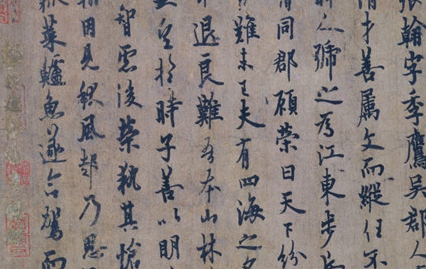 張翰字季鷹吳郡人
清才善屬文而縱任不
時人號之為江東步兵
謂同郡顧榮曰天下紛
難未已夫有四海之名
求退良難吾本山林
望於時子善以明
智慮後榮執其愴
翰因見秋風起乃思
菰菜鱸魚遂命駕而